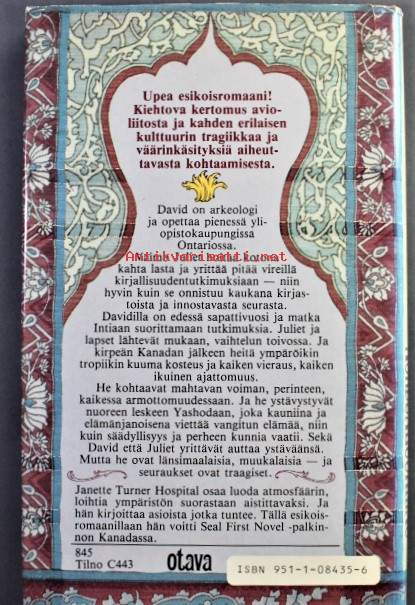 Upea esikoisromaani!
Kiehtova kertomus avio-
liitosta ja kahden erilaisen
kulttuurin tragiikkaa ja
väärinkäsityksiä aiheut-
tavasta kohtaamisesta.
David on arkeologi
ja opettaa pienessä yli-
opistokaupungissa
Ontariossa.
kahta lasta ja yrittää pitää vireillä
kirjallisuudentutkimuksiaan — niin
hyvin kuin se onnistuu kaukana kirjas-
toista ja innostavasta seurasta.
Davidilla on edessä sapattivuosi ja matka
Intiaan suorittamaan tutkimuksia. Juliet ja
lapset lähtevät mukaan, vaihtelun toivossa. Ja
kirpeän Kanadan jälkeen heitä ympäröikin
tropiikin kuuma kosteus ja kaiken vieraus, kaiken
ikuinen ajattomuus.
He kohtaavat mahtavan voiman, perinteen,
kaikessa armottomuudessaan. Ja he ystävystyvät
nuoreen leskeen Yashodaan, joka kauniina ja
elämänjanoisena viettää vangitun elämää, niin
kuin säädyllisyys ja perheen kunnia vaatii. Sekä
David että Juliet yrittävät auttaa ystäväänsä.
Mutta he ovat länsimaalaisia, muukalaisia — ja
seuraukset ovat traagiset.
Janette Turner Hospital osaa luoda atmosfäärin,
loihtia ympäristön suorastaan aistittavaksi. Ja
hän kirjoittaa asioista jotka tuntee. Tällä esikois-
romaanillaan hän voitti Seal First Novel -palkin-
non Kanadassa.
845
Tilno C443
otava
ISBN 951-1-08435-6